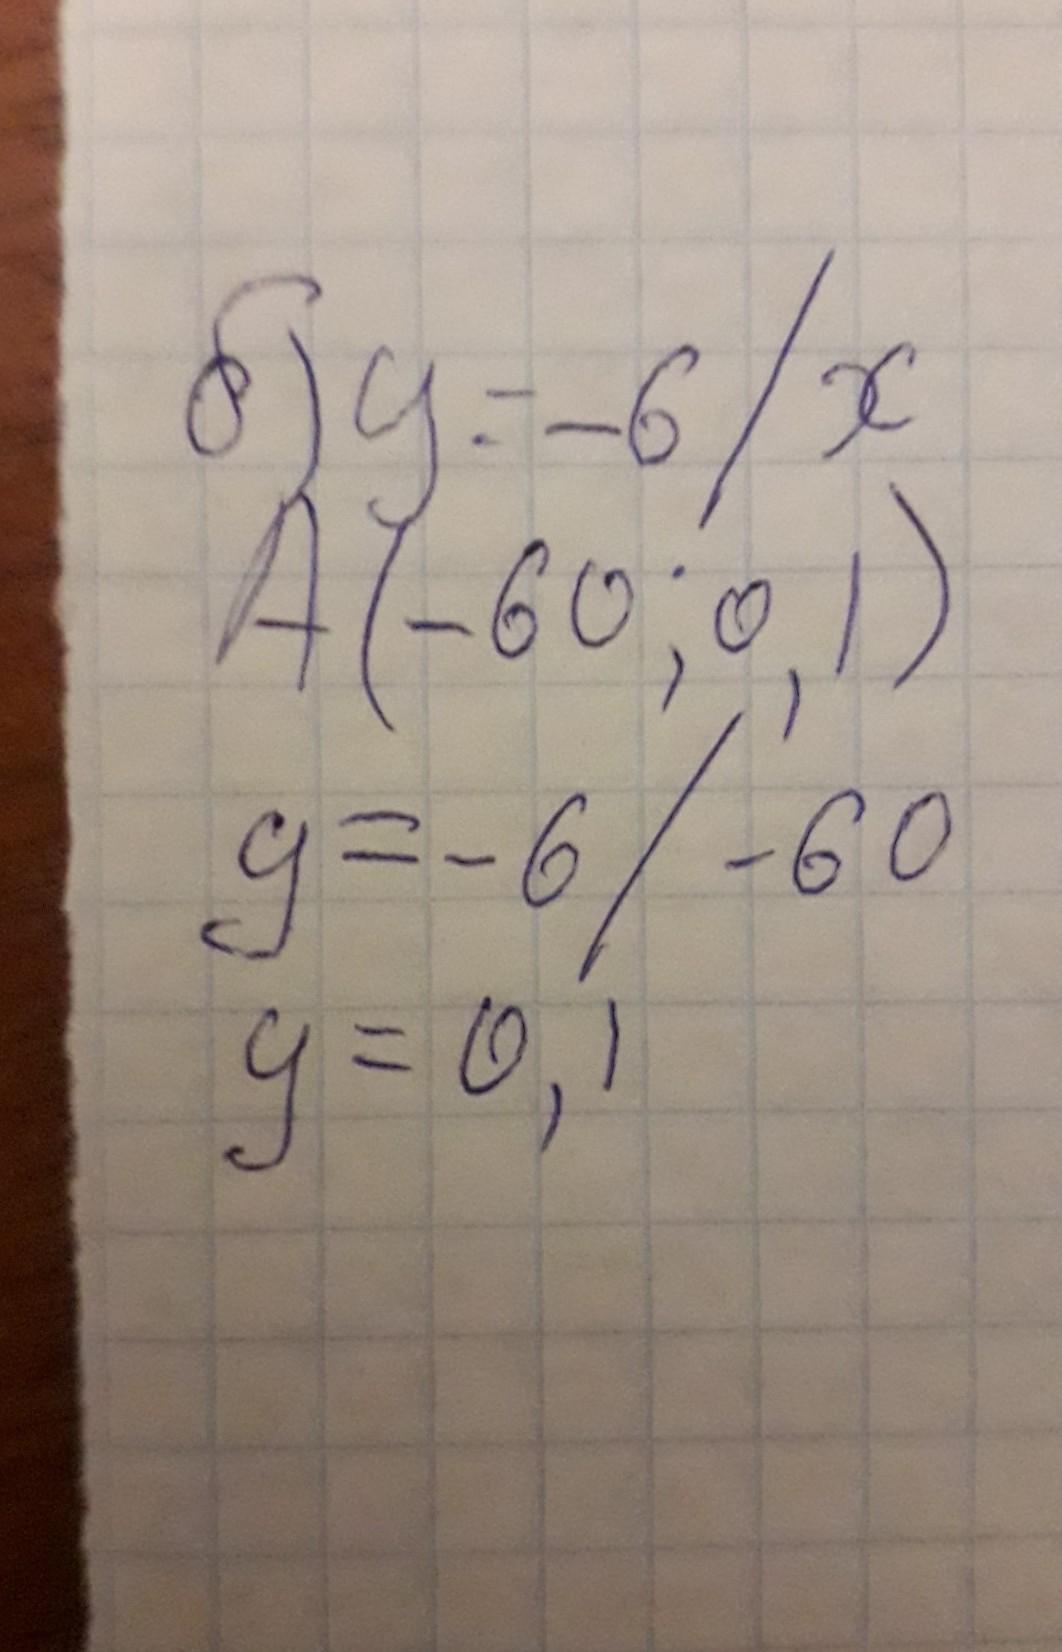 б) y = -6 / x
A (-60; 0,1)
y = -6 / -60
y = 0,1